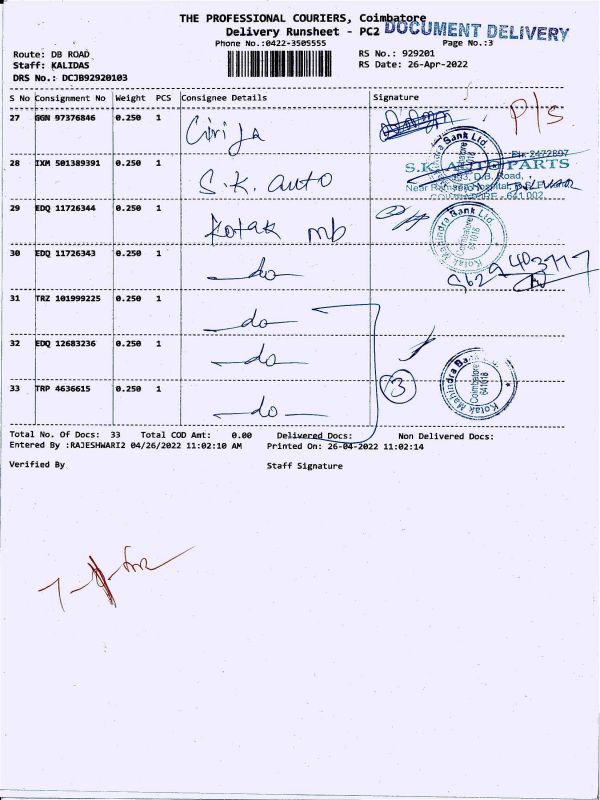 THE PROFESSIONAL COURIERS, Coimbatore
Delivery Runsheet - PC2
DOCUMENT DELIVERY
Phone No.:0422-3505555
Page No.:3
Route: DB ROAD
RS No.: 929201
Staff: KALIDAS
RS Date: 26-Apr-2022
DRS No.: DCJB92920103
S No Consignment No Weight PCS Consignee Details Signature
27 GGN 97376846 0.250 1
P/S
28 IXM 501389391 0.250 1 S.K. auto
Ph: 2472897
S.K. AUTO PARTS
D.B. Road,
COIMBATORE - 641 002.
29 EDQ 11726344 0.250 1 Kotak mb
Kotak Mahindra Bank Ltd.
Coimbatore
641018
30 EDQ 11726343 0.250 1 — do —
31 TRZ 101999225 0.250 1 — do —
32 EDQ 12683236 0.250 1 — do —
33 TRP 4636615 0.250 1 — do —
3
Kotak Mahindra Bank
Coimbatore
641018
Total No. Of Docs: 33 Total COD Amt: 0.00 Delivered Docs: Non Delivered Docs:
Entered By :RAJESHWARI2 04/26/2022 11:02:10 AM Printed On: 26-04-2022 11:02:14
Verified By Staff Signature